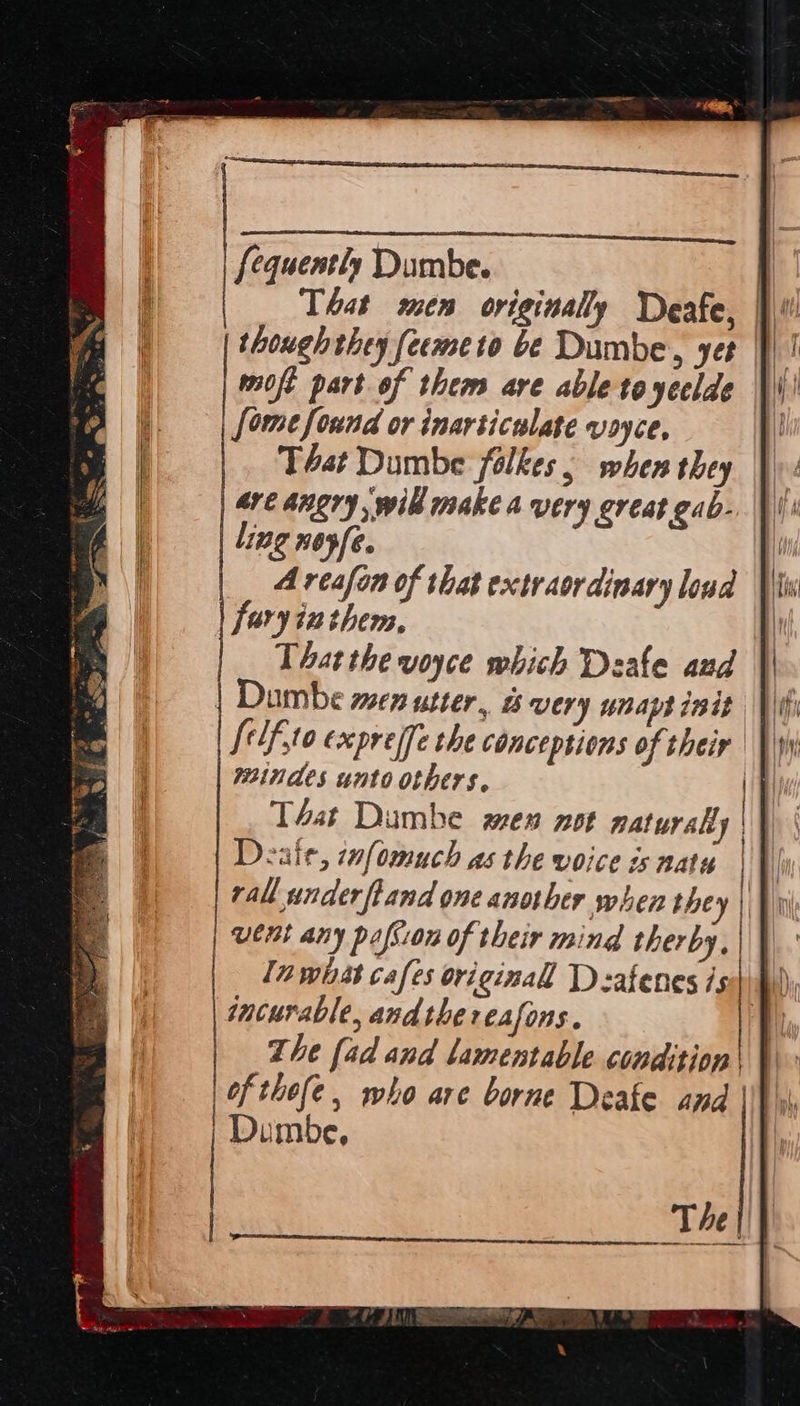 ſequently Dumbe.
That men originally Deafe,
though they ſeeme to be Dumbe, yet
moſt part of them are able to yeelde
ſome ſound or inarticulate voyce.
That Dumbe folkes, when they
are angry, will make a very great gab-
ling noyſe.
A reaſon of that extraordinary loud
fury in them.
That the voyce which Deafe and
Dumbe men utter, is very unapt in it
ſelf, to expreſſe the conceptions of their
mindes unto others.
That Dumbe men not naturally
Deafe, inſomuch as the voice is natu
rall underſtand one another when they
vent any paſſion of their mind therby.
In what caſes originall Deafenes is
incurable, and the reaſons.
The ſad and lamentable condition
of thoſe, who are borne Deafe and
Dumbe.
The